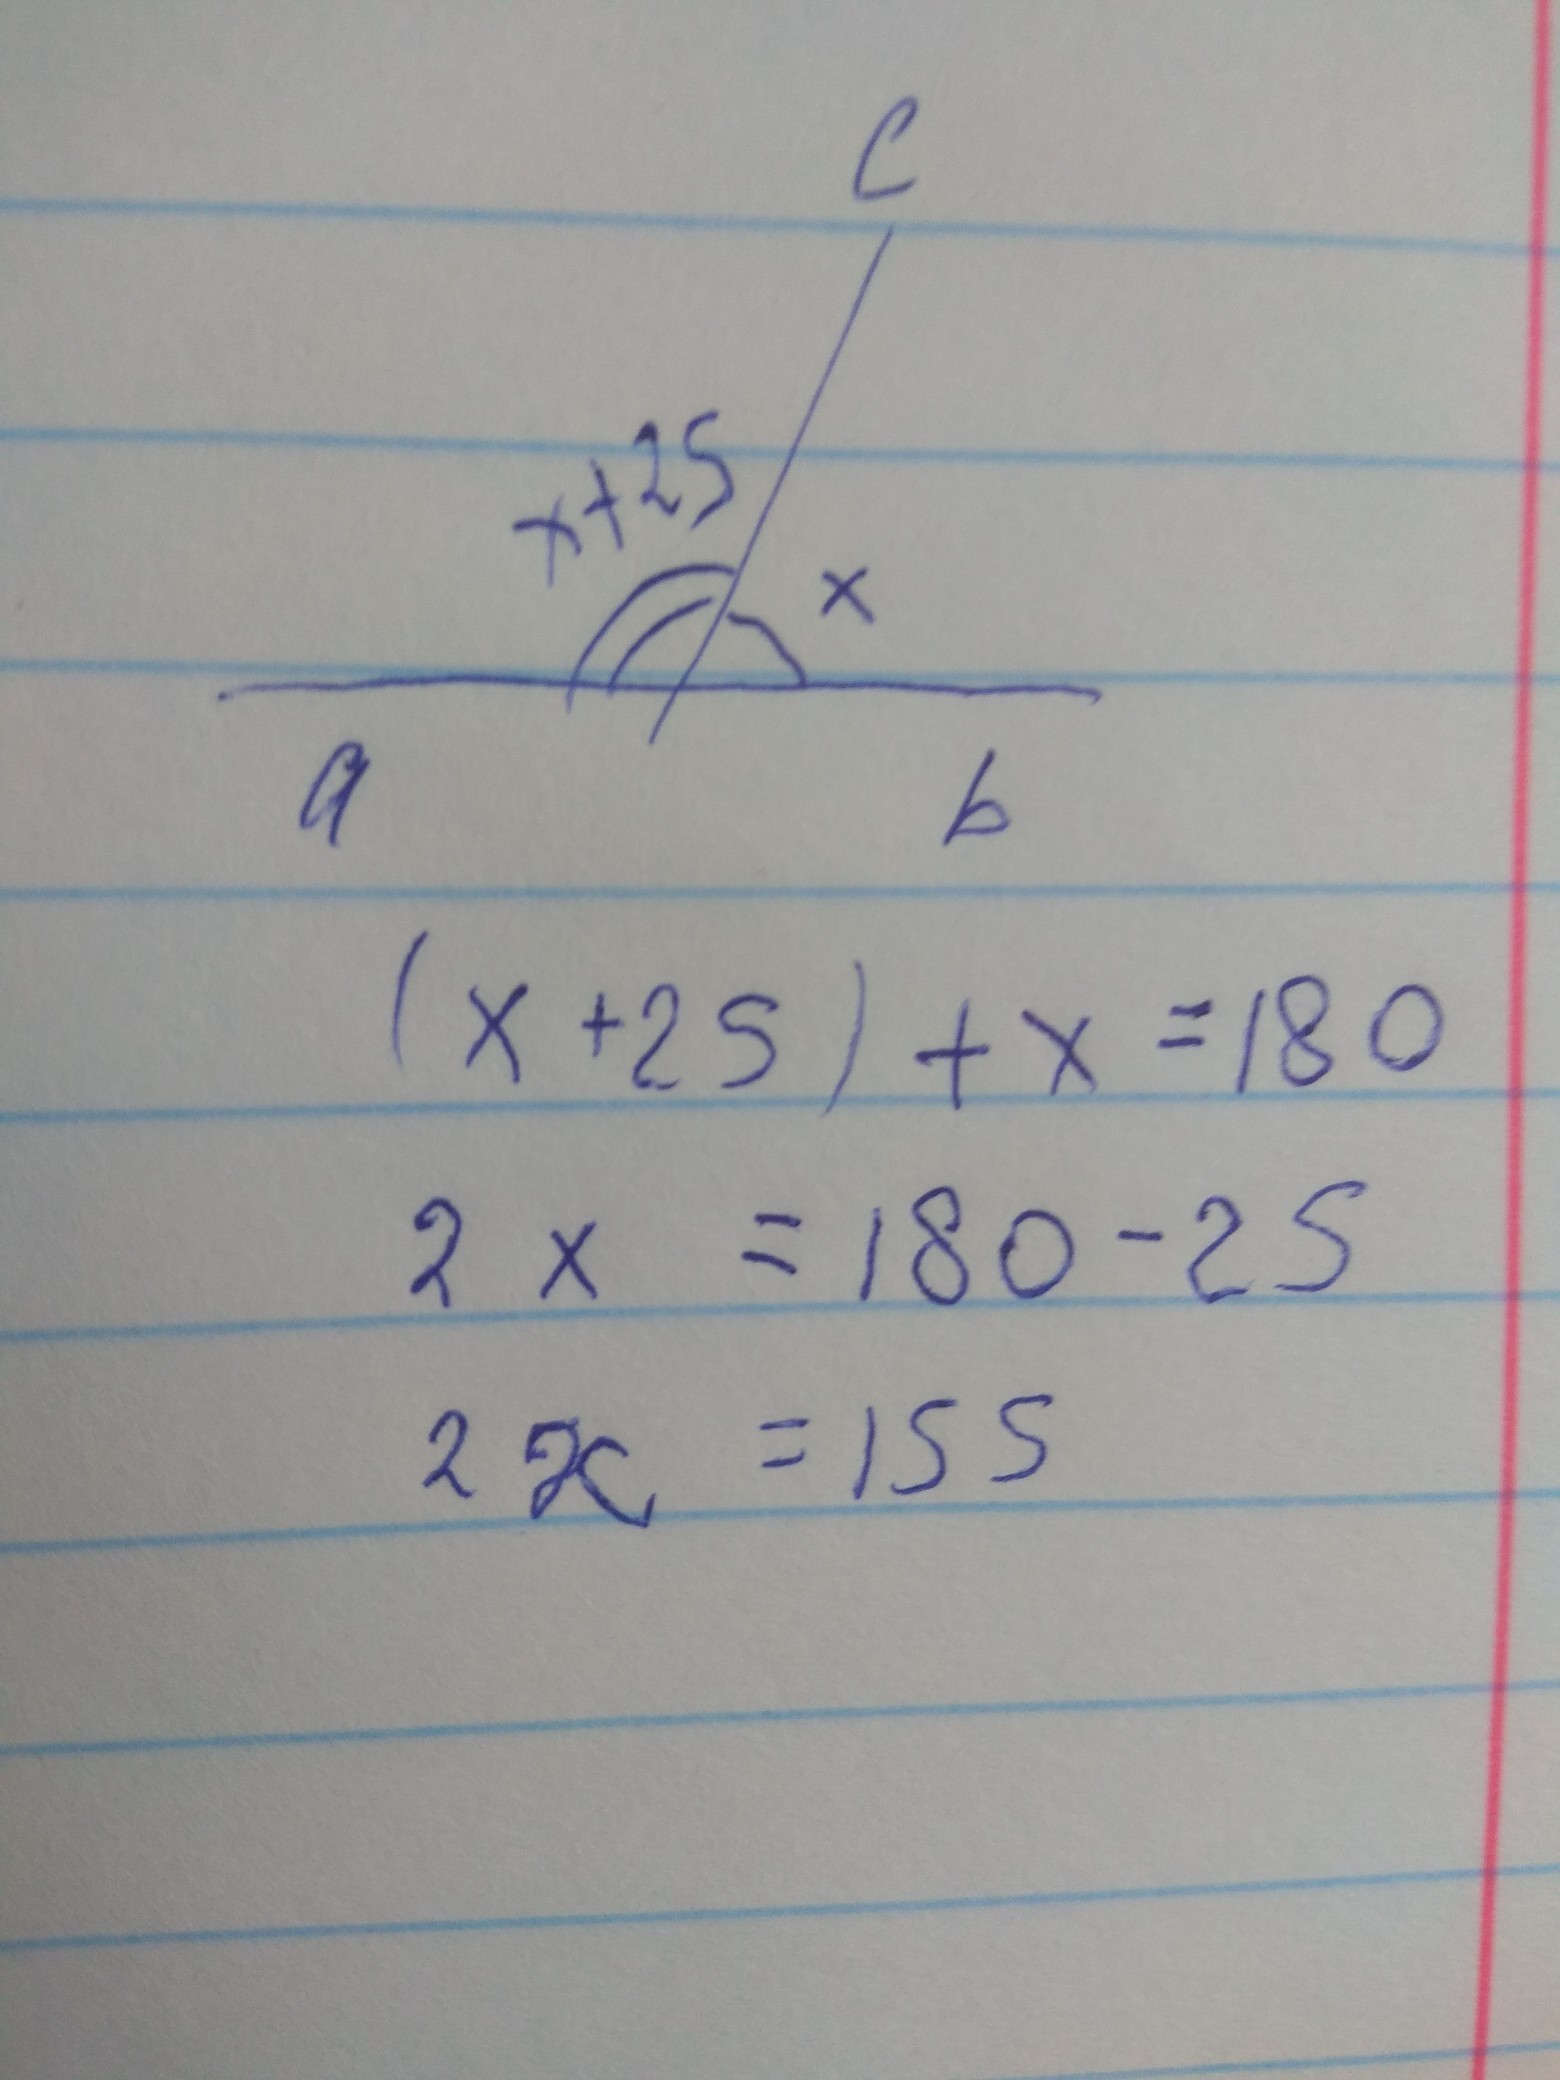 C
x+25
x
a b
(x+25)+x=180
2x =180-25
2x =155